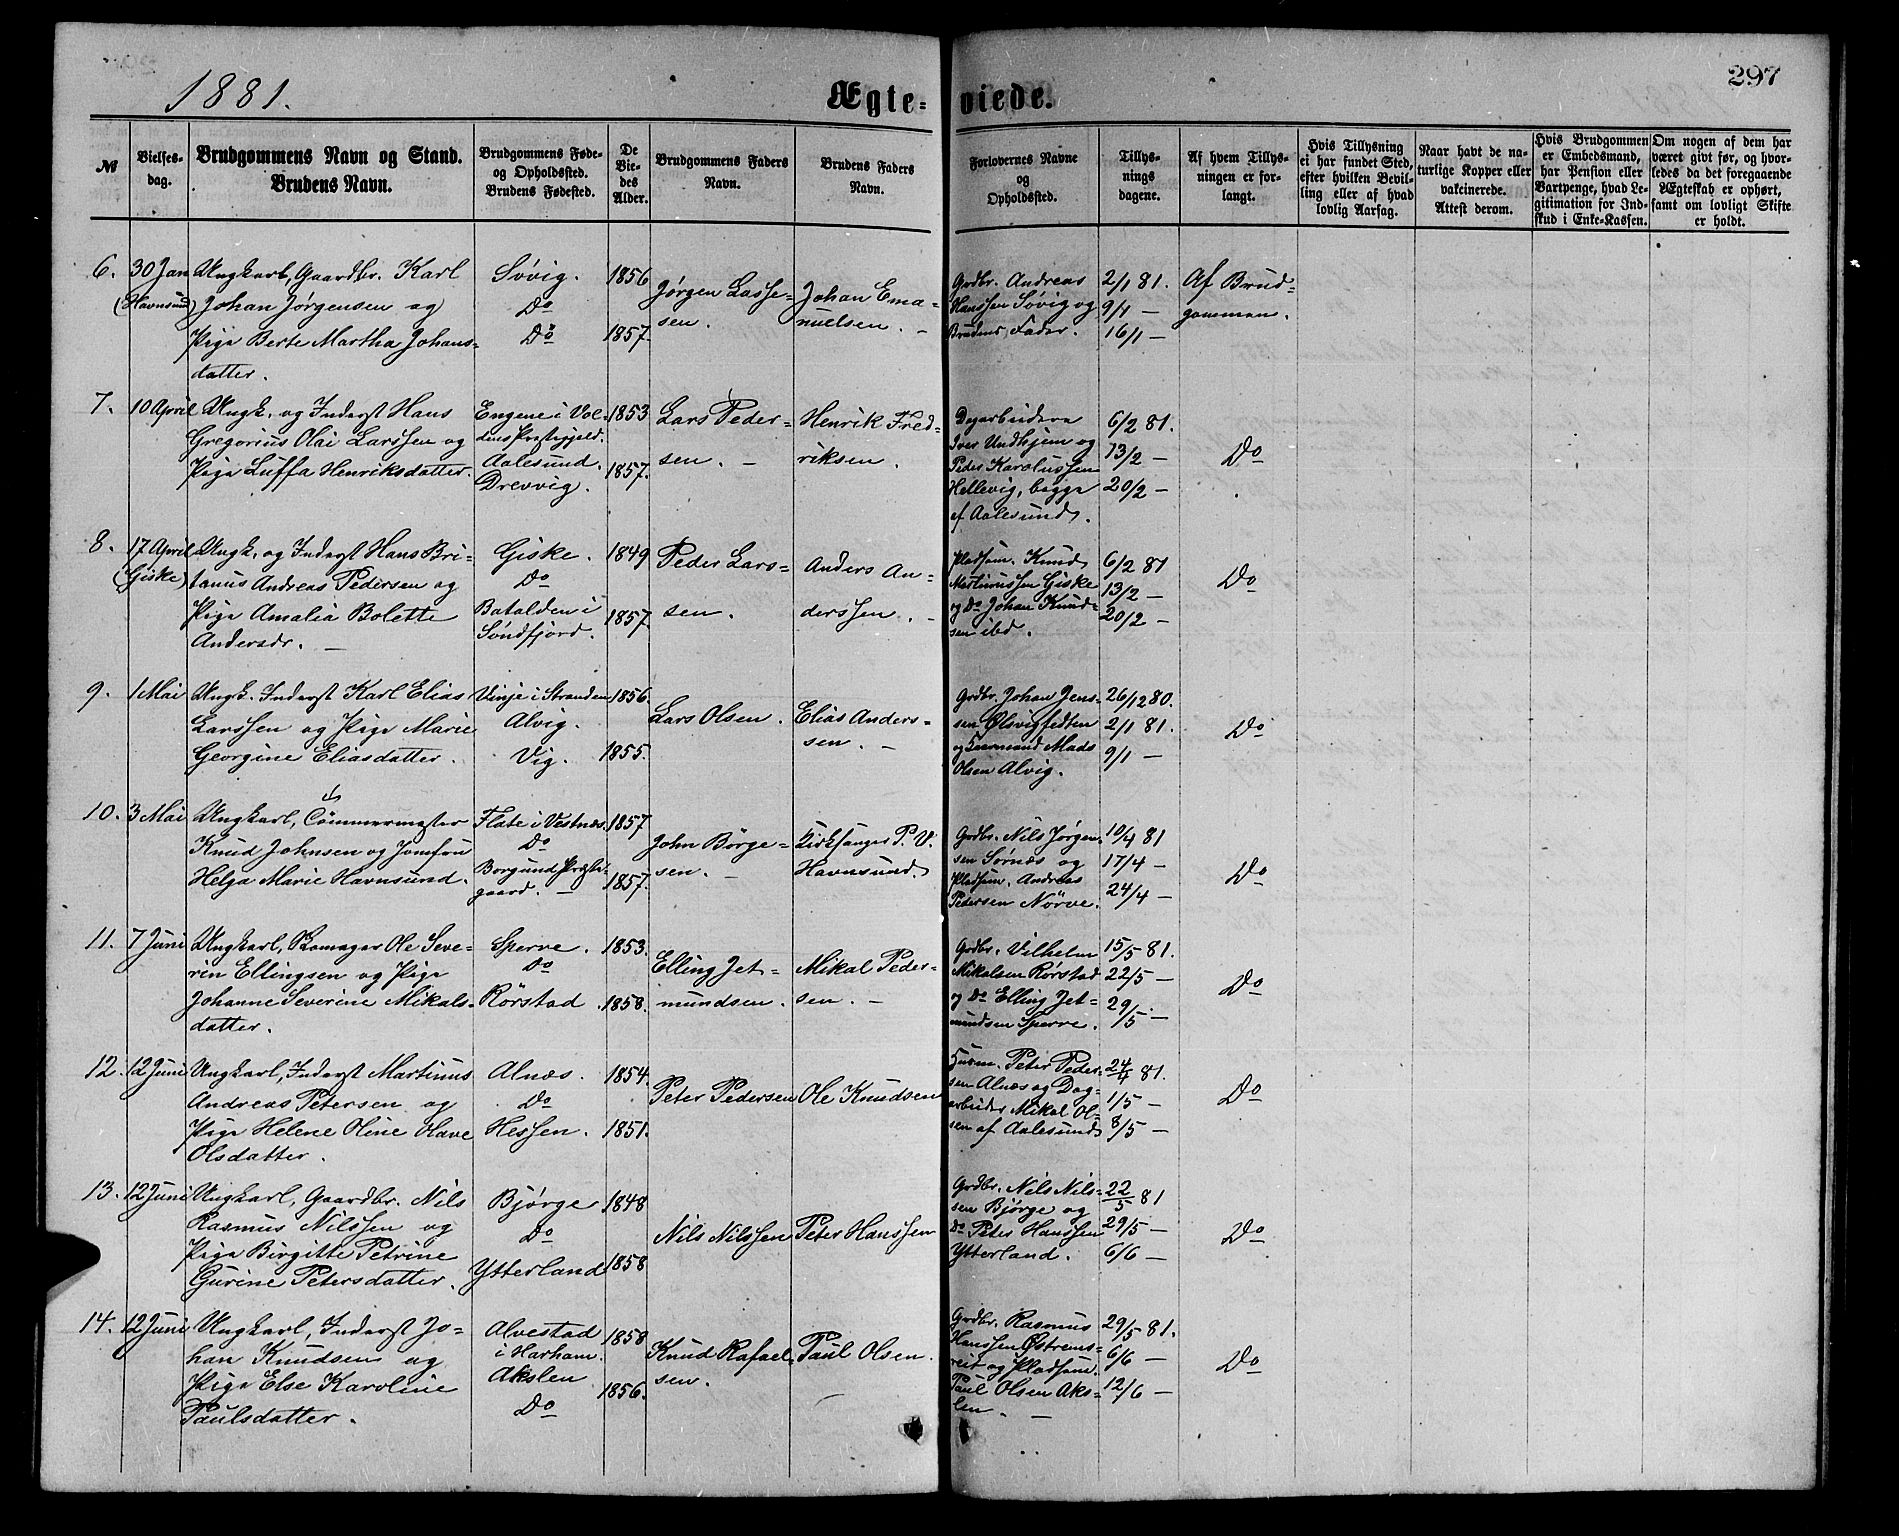 1881.
Ægte-viede.
297
№
Vielses-
dag.
Brudgommens Navn og Stand.
Brudens Navn.
Brudgommens Føde-
og Opholdssted.
Brudens Fødested.
De
Vie-
des
Alder.
Brudgommens Faders
Navn.
Brudens Faders
Navn.
Forlovernes Navne
og
Opholdssted.
Tillys-
nings
dagene.
Af hvem Tillys-
ningen er for-
langt.
Hvis Tillysning
ei har fundet Sted,
efter hvilken Bevil-
ling eller af hvad
lovlig Aarsag.
Naar havt de na-
turlige Kopper eller
vakcinerede.
Attest derom.
Hvis Brudgommen
er Embedsmand,
har Pension eller
Vartpenge, hvad Le-
gitimation for Ind-
skud i Enke-Kassen.
Om nogen af dem har
været givt før, og hvor-
ledes da det foregaaende
Ægteskab er ophørt,
samt om lovligt Skifte
er holdt.
6.
30 Jan
(Havnsund)
Ungkarl, Gaardbr. Karl
Johan Jørgensen og
Pige Berte Martha Johans-
datter.
Søvig.
Do
Do
1856
1857.
Jørgen Lasse-
sen.
Johan Ema-
nuelsen. –
Grdbr. Andreas
Hanssen Søvig og
Brudens Fader.
2/1 81.
9/1 –
16/1 –
Af Brud-
gommen.
7.
10 April
Ungk. og Inderst Hans
Gregorius Olai Larssen og
Pige Luffa Henriksdatter.
Engene i Vol-
dens Præstegjeld.
Aalesund.
Drevvig.
1853
1857.
Lars Peder-
sen. –
Henrik Fred-
riksen.
Dagarbeidere
Iver Undhjem og
Peder Karolussen
Hellevig, begge
af Aalesund.
6/2 81.
13/2 –
20/2 –
Do
8.
17 April
(Giske)
Ungk. og Inderst Hans Bri-
tanus Andreas Pedersen og
Pige Amalia Bolette
Andersdr. –
Giske.
Do
Batalden i
Söndfjord.
1849
1857.
Peder Lars-
sen.
Anders An-
derssen. –
Pladsm. Knud
Martinussen Giske
og Do Johan Knud-
sen ibd.
6/2 81
13/2 –
20/2 –
Do
9.
1 Mai
Ungk. Inderst Karl Elias
Larssen og Pige Marie
Georgine Eliasdatter.
Vinje i Stranden
Alvig.
Vig.
1856.
1855.
Lars Olsen.
Elias Anders-
sen. –
Grdbr. Johan Jens-
sen Olsvigfedten
og Huusmand Mads
Olsen Alvig.
26/12 80.
2/1 81.
9/1 –
Do
10.
3 Mai
Ungkarl, Tömmermester
Knud Johnsen og Jomfru
Helga Marie Havnsund.
Flate i Vestnæs.
Do
Borgund Præste-
gaard. –
1857
1857.
John Börge-
sen. –
Kirksanger P. V.
Havnsund.
Grdbr. Nils Jørgen-
sen Sørnæs og
Pladsm. Andreas
Pedersen Nörve.
10/4 81
17/4 –
24/4 –
Do
11.
7 Juni
Ungkarl, Skomager Ole Seve-
rin Ellingsen og Pige
Johanne Severine Mikals-
datter.
Sperre.
Do
Rörstad
1853.
1858.
Elling Jet-
mundsen.
Mikal Peder-
sen. –
Grdbr. Vilhelm
Mikalsen Rørstad
og Do Elling Jet-
mundsen Sperre.
15/5 81.
22/5 –
29/5 –
Do
12.
12 Juni
Ungkarl, Inderst Martinus
Andreas Petersen og
Pige Helene Oline Have
Olsdatter.
Alnæs.
Do
Hessen.
1854.
1851.
Peter Pedersen
Ole Knudsen
Husm. Peter Peder-
sen Alnæs og Dag-
arbeider Mikal Ol-
sen af Aalesund
24/4 81.
1/5 –
8/5 –
Do
13.
12 Juni
Ungkarl, Gaardbr. Nils
Rasmus Nilssen og
Pige Birgitte Petrine
Gurine Petersdatter.
Bjørge
Do
Ytterland
1848
1858
Nils Nilssen
Peter Hanssen
Grdbr. Nils Nils-
sen Bjørge og
Do Peter Hanssen
Ytterland.
22/5 81
29/5 –
6/6 –
Do
14.
12 Juni
Ungkarl, Inderst Jo-
han Knudsen og
Pige Else Karoline
Paulsdatter.
Alvestad
i Harham.
Akslen
Do
1858
1856.
Knud Rafael-
sen.
Paul Olsen.
Grdbr. Rasmus
Hanssen Østrems-
reit og Pladsm.
Paul Olsen Aks-
len. –
29/5 81.
6/6 –
12/6 –
Do